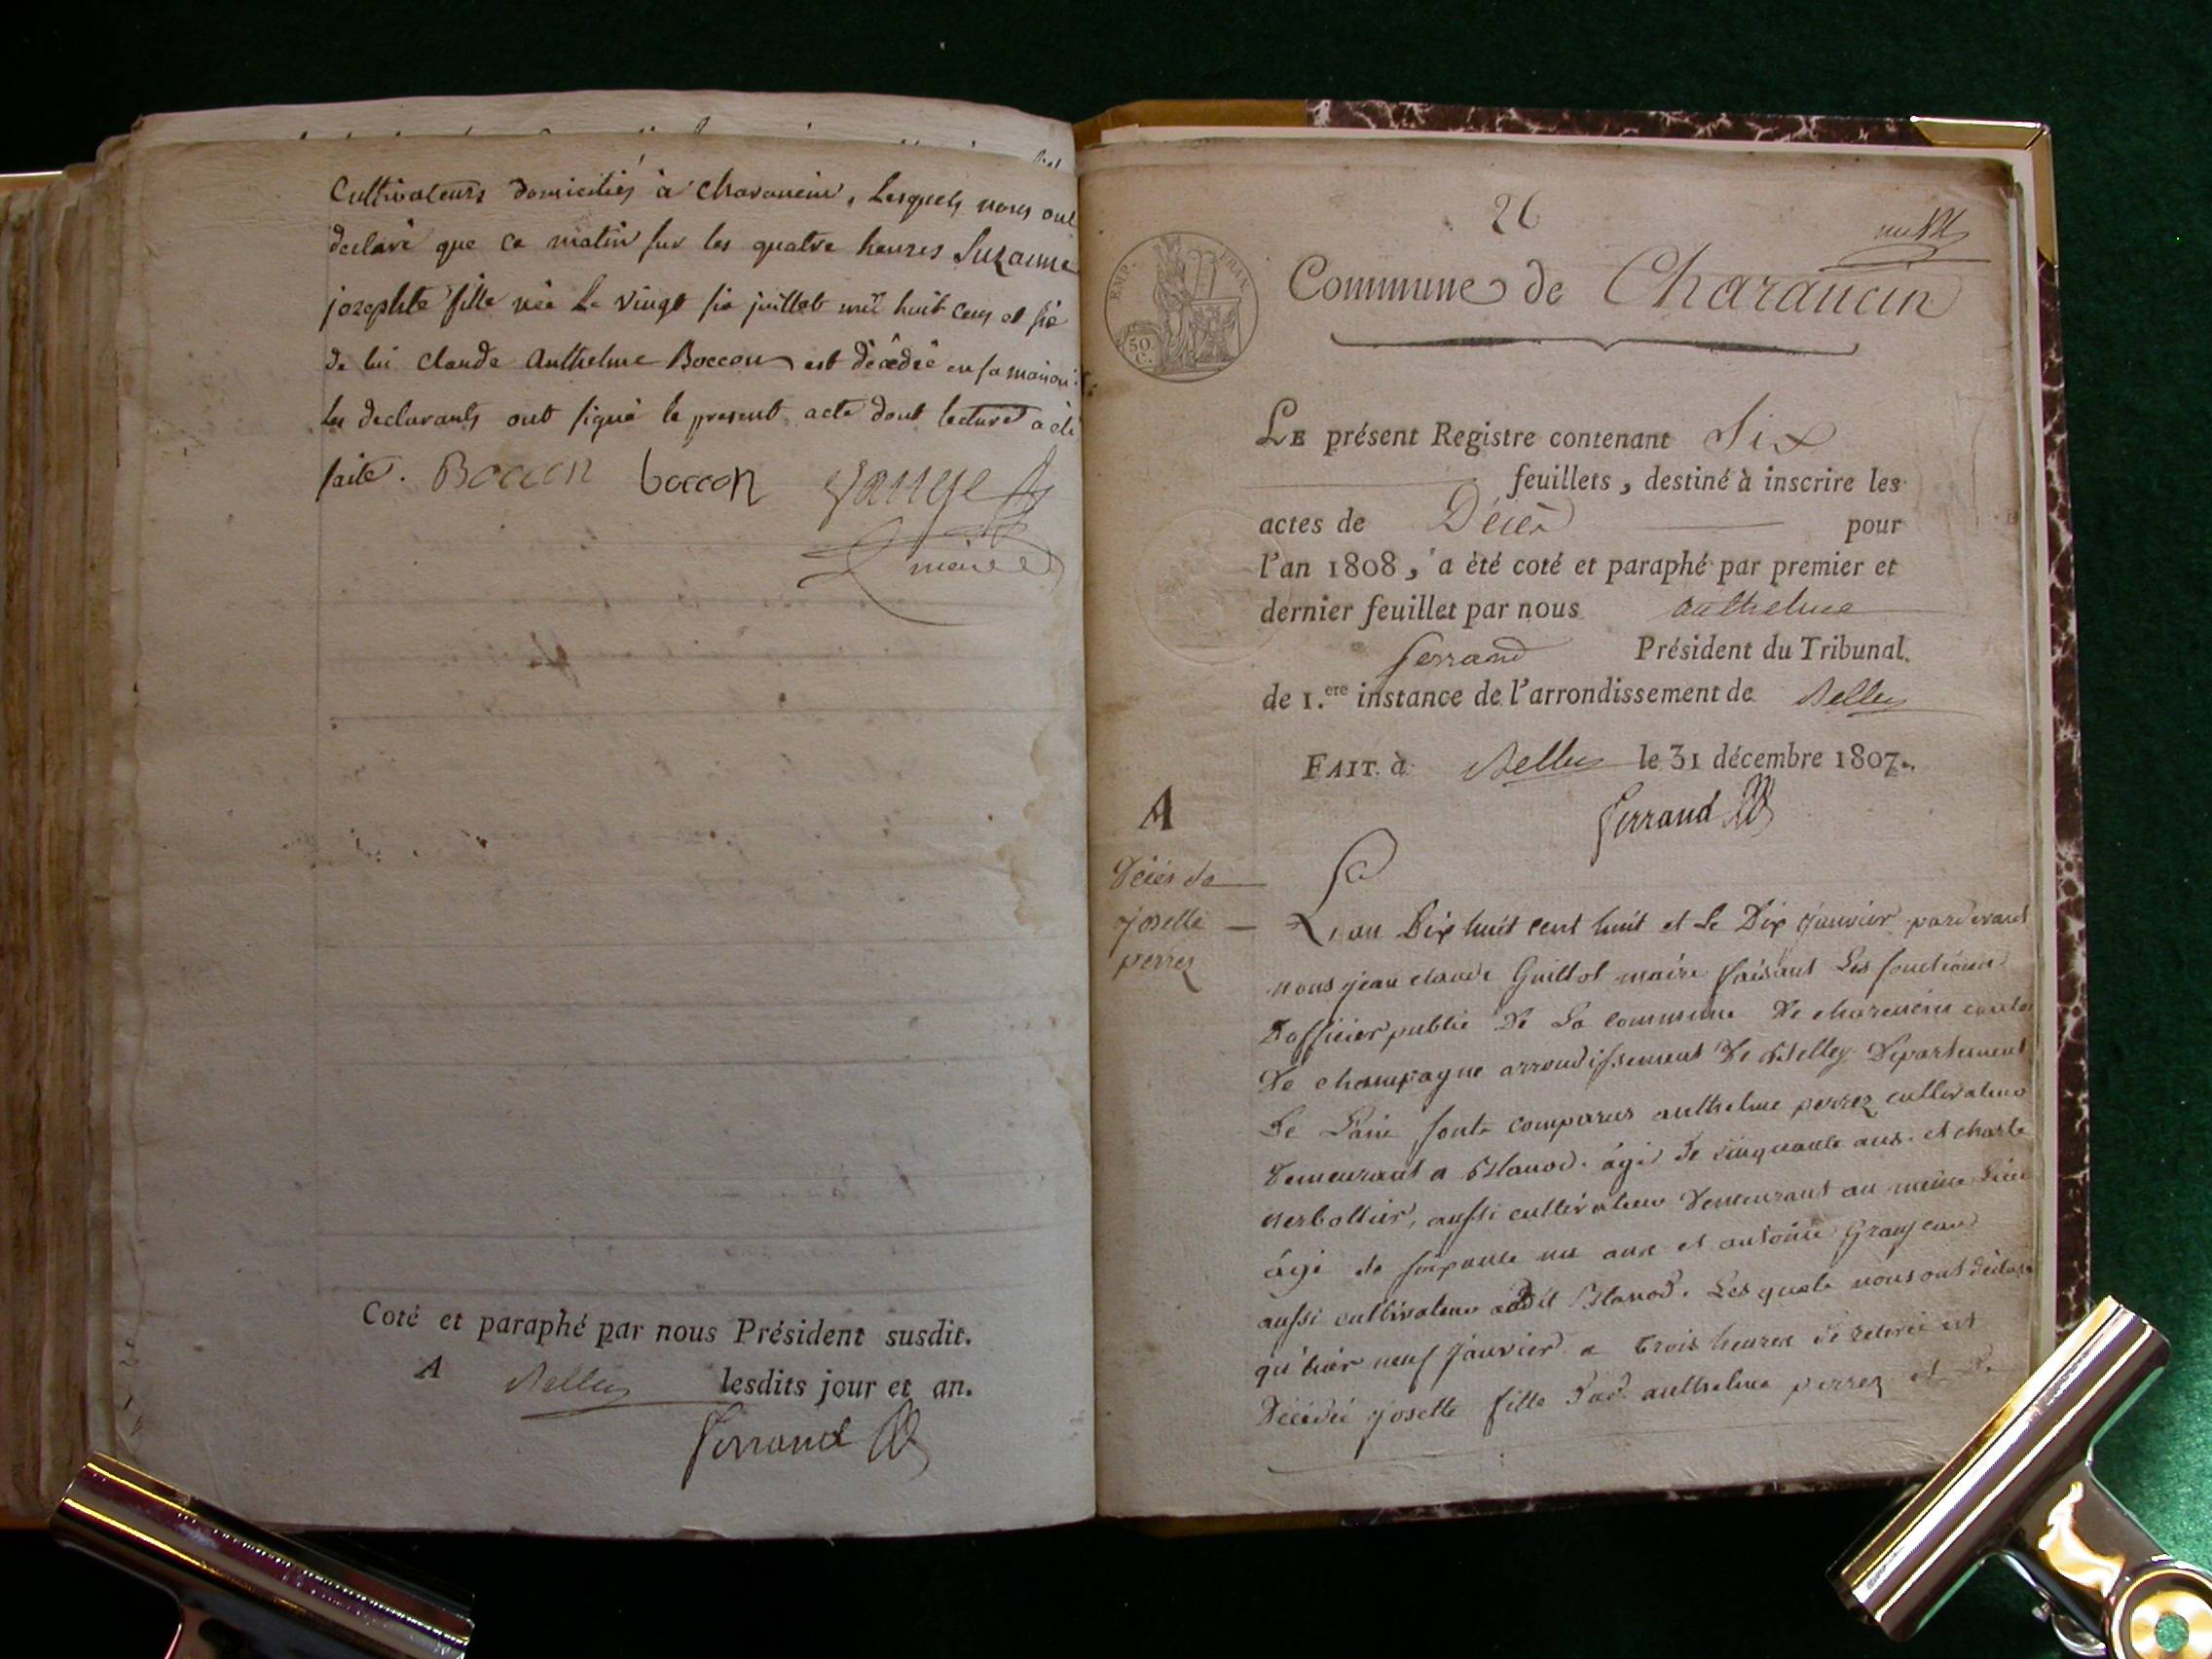 Cultivateurs domiciliés à charancin, Lesquels nous ont
declaré que ce matin sur les quatre heures Suzanne
josephte fille née Le vingt six juillet mil huit cens et six
de lui Claude Anthelme Boccon est décédée en sa maison.
les declarants ont signé le present acte dont lecture a été
faite. Boccon boccon
maire
Coté et paraphé par nous Président susdit.
A Belley lesdits jour et an.
Ferrand
26
EMP. FRAN.
50 C.
Commune de Charancin
LE présent Registre contenant Six
feuillets, destiné à inscrire les
actes de Décès pour
l'an 1808, a été coté et paraphé par premier et
dernier feuillet par nous anthelme
ferrand Président du Tribunal
de 1.ere instance de l'arrondissement de Belley
FAIT à Belley le 31 décembre 1807.
Ferrand
A
Décès de
josette
perrez
L'an Dix huit cent huit et Le Dix janvier pardevant
nous jean claude Guillot maire faisant Les fonctions
D'officier public De La commune De charencin canton
De champagne arrondissement De Belley Departement
De L'ain sont comparus anthelme perrez cultivateur
Demeurant a agé de cinquante ans. et charle
aussi cultivateur Demeurant au même Lieu
âgé de soixante un ans et antoine Granjean
aussi cultivateur audit Les quels nous ont déclaré
qu'hier neuf janvier a trois heures de relevée est
Décédée josette fille dud anthelme perrez et De